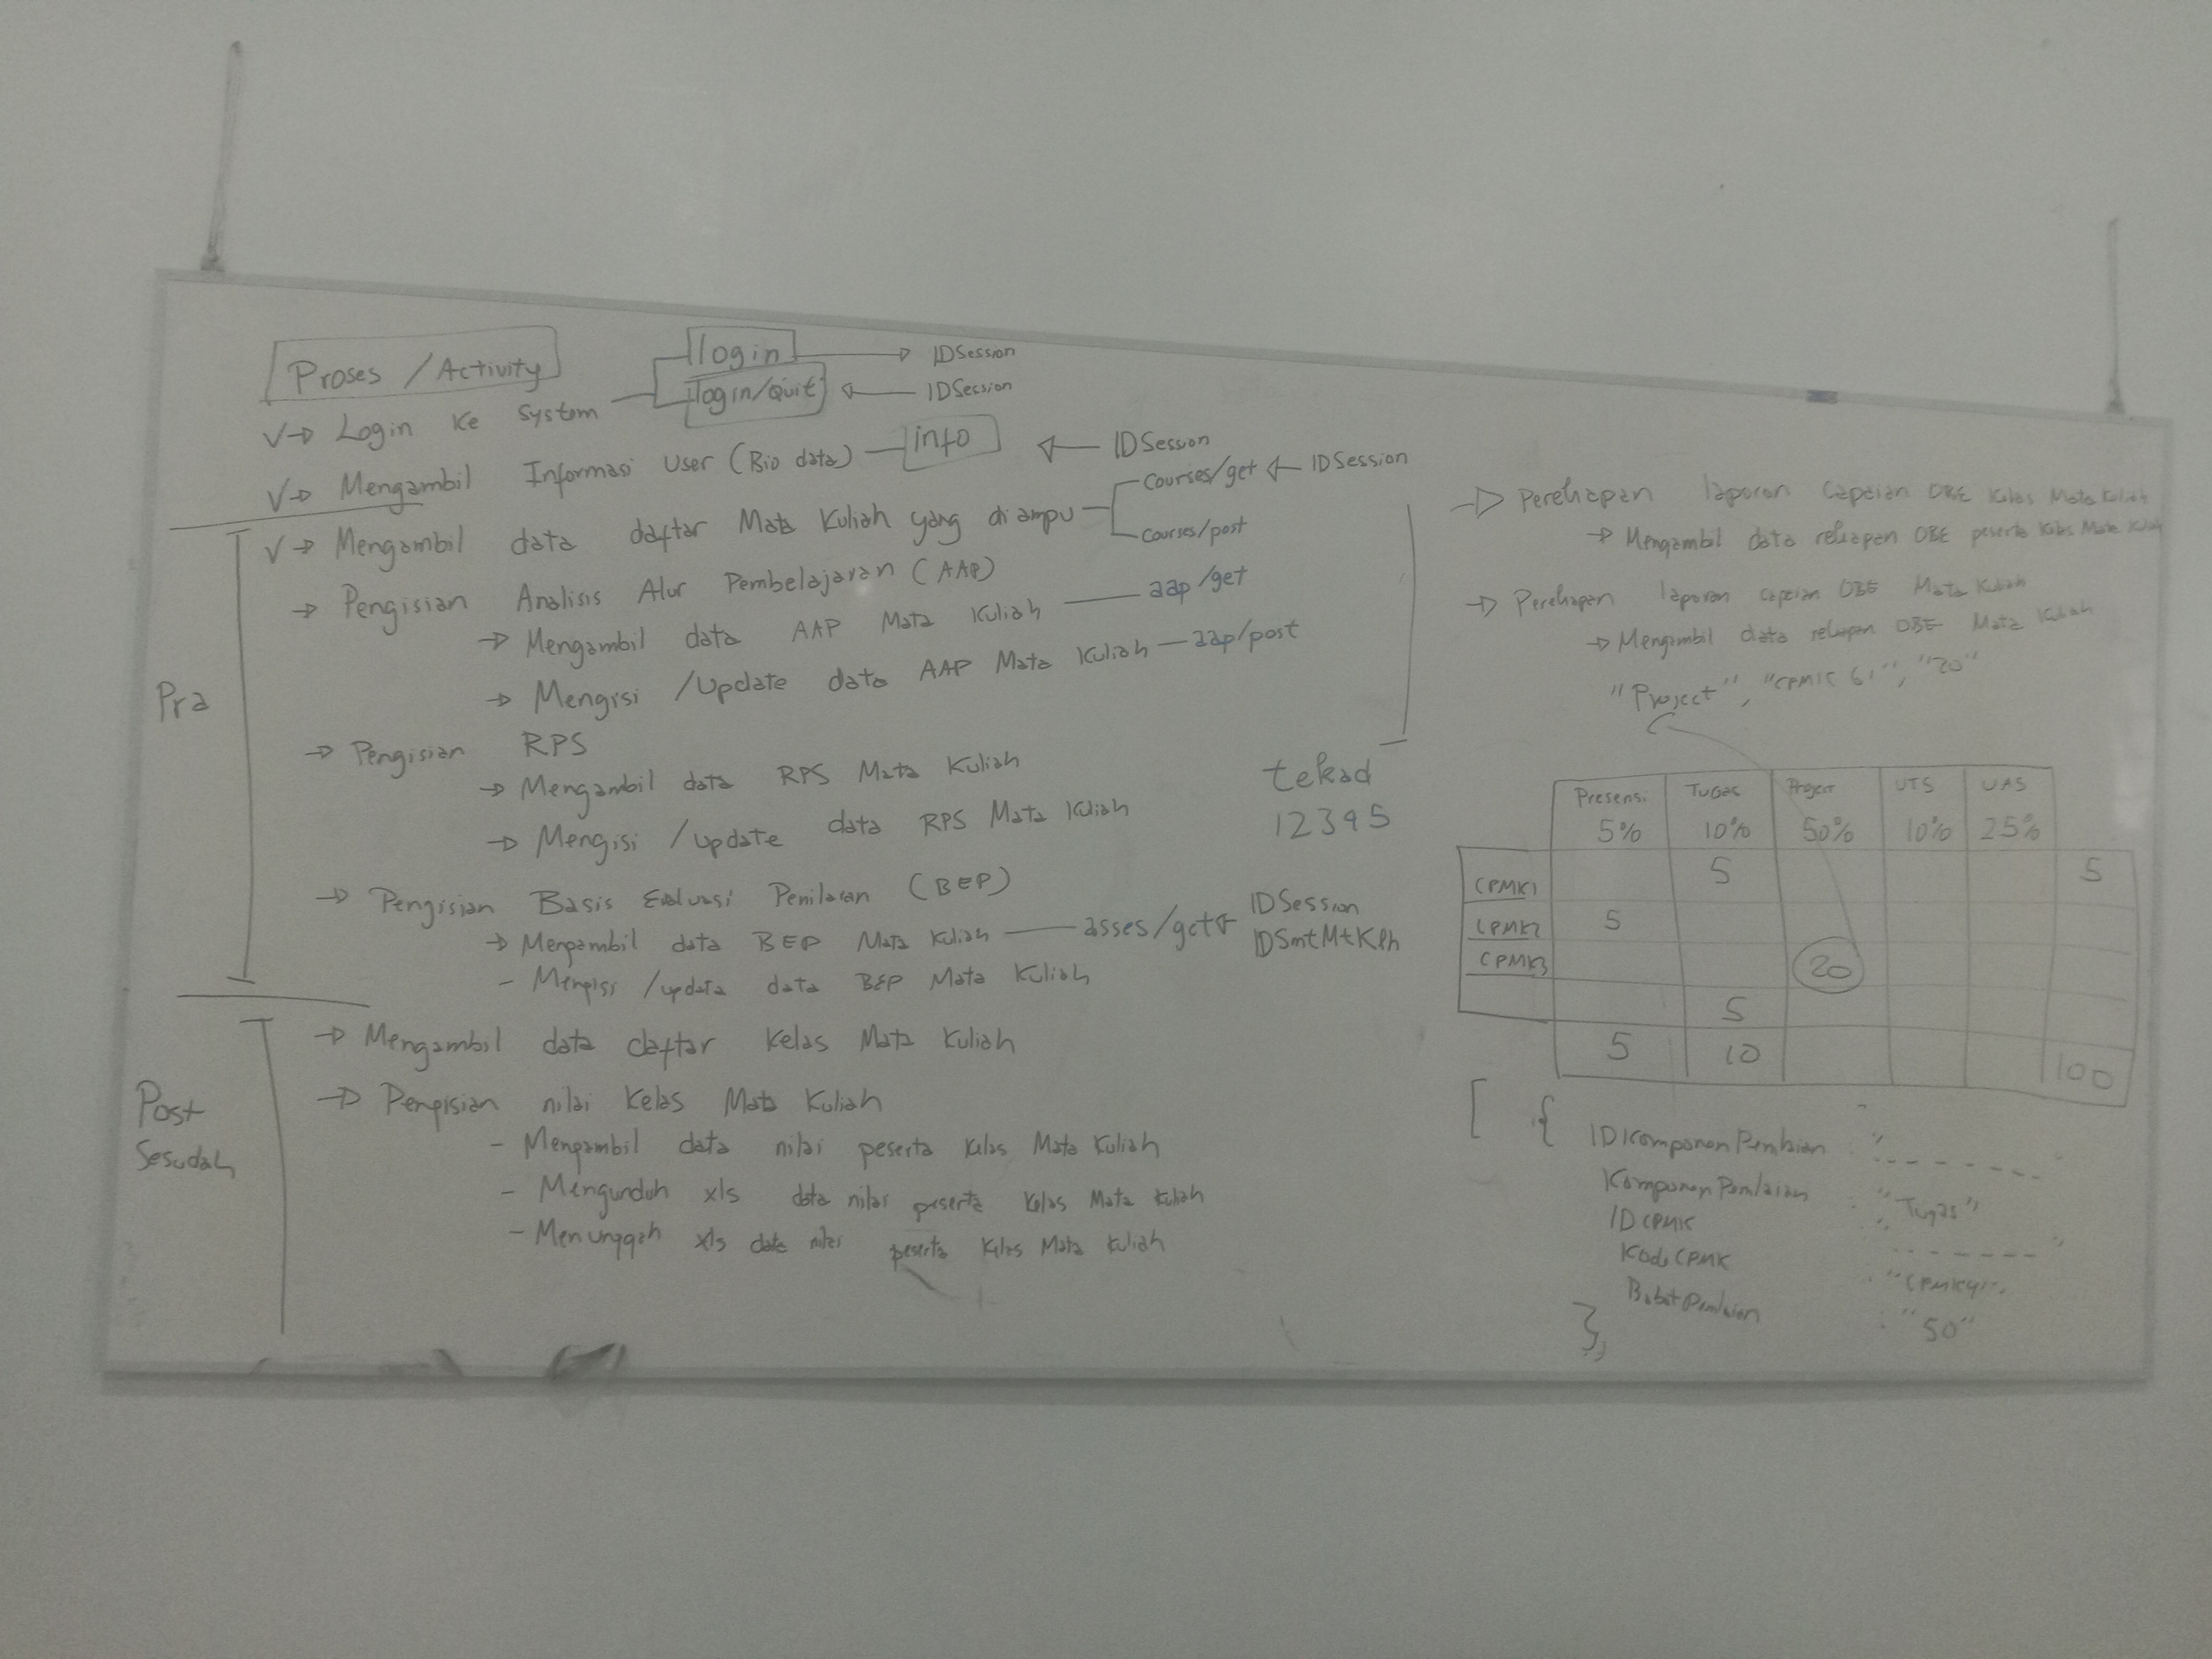 Proses / Activity
login
IDSession
login/Quit
IDSession
Login ke System
Mengambil Informasi User (Bio data)
info
IDSession
Mengambil data daftar Mata Kuliah yang diampu
Courses/get
IDSession
Courses/post
Pra
Pengisian Analisis Alur Pembelajaran (AAP)
Mengambil data AAP Mata Kuliah
aap/get
Mengisi /Update data AAP Mata Kuliah
aap/post
Pengisian RPS
Mengambil data RPS Mata Kuliah
Mengisi /update data RPS Mata Kuliah
tekad
12345
Pengisian Basis Evaluasi Penilaian (BEP)
Mengambil data BEP Mata Kuliah
asses/get
IDSession
IDSmtMtKlh
- Mengisi /update data BEP Mata Kuliah
Post
Sesudah
Mengambil data daftar Kelas Mata Kuliah
Pengisian nilai Kelas Mata Kuliah
- Mengambil data nilai peserta Kelas Mata Kuliah
- Mengunduh xls data nilai peserta Kelas Mata Kuliah
- Menunggah xls data nilai peserta Kelas Mata Kuliah
Perekapan laporan Capaian OBE Kelas Mata Kuliah
Mengambil data rekapan OBE peserta Kelas Mata Kuliah
Perekapan laporan capaian OBE Mata Kuliah
Mengambil data rekapan OBE Mata Kuliah
"Project", "CPMK 61", "20"
Presensi Tugas Project UTS UAS
5% 10% 50% 10% 25%
CPMK1 5 5
CPMK2 5
CPMK3 20
5
5 10 100
[ {
IDKomponenPenilaian : "- - - - - - -"
KomponenPenilaian : "Tugas"
IDCPMK : "- - - - - -"
KodeCPMK : "CPMK41",
BobotPenilaian : "50"
},